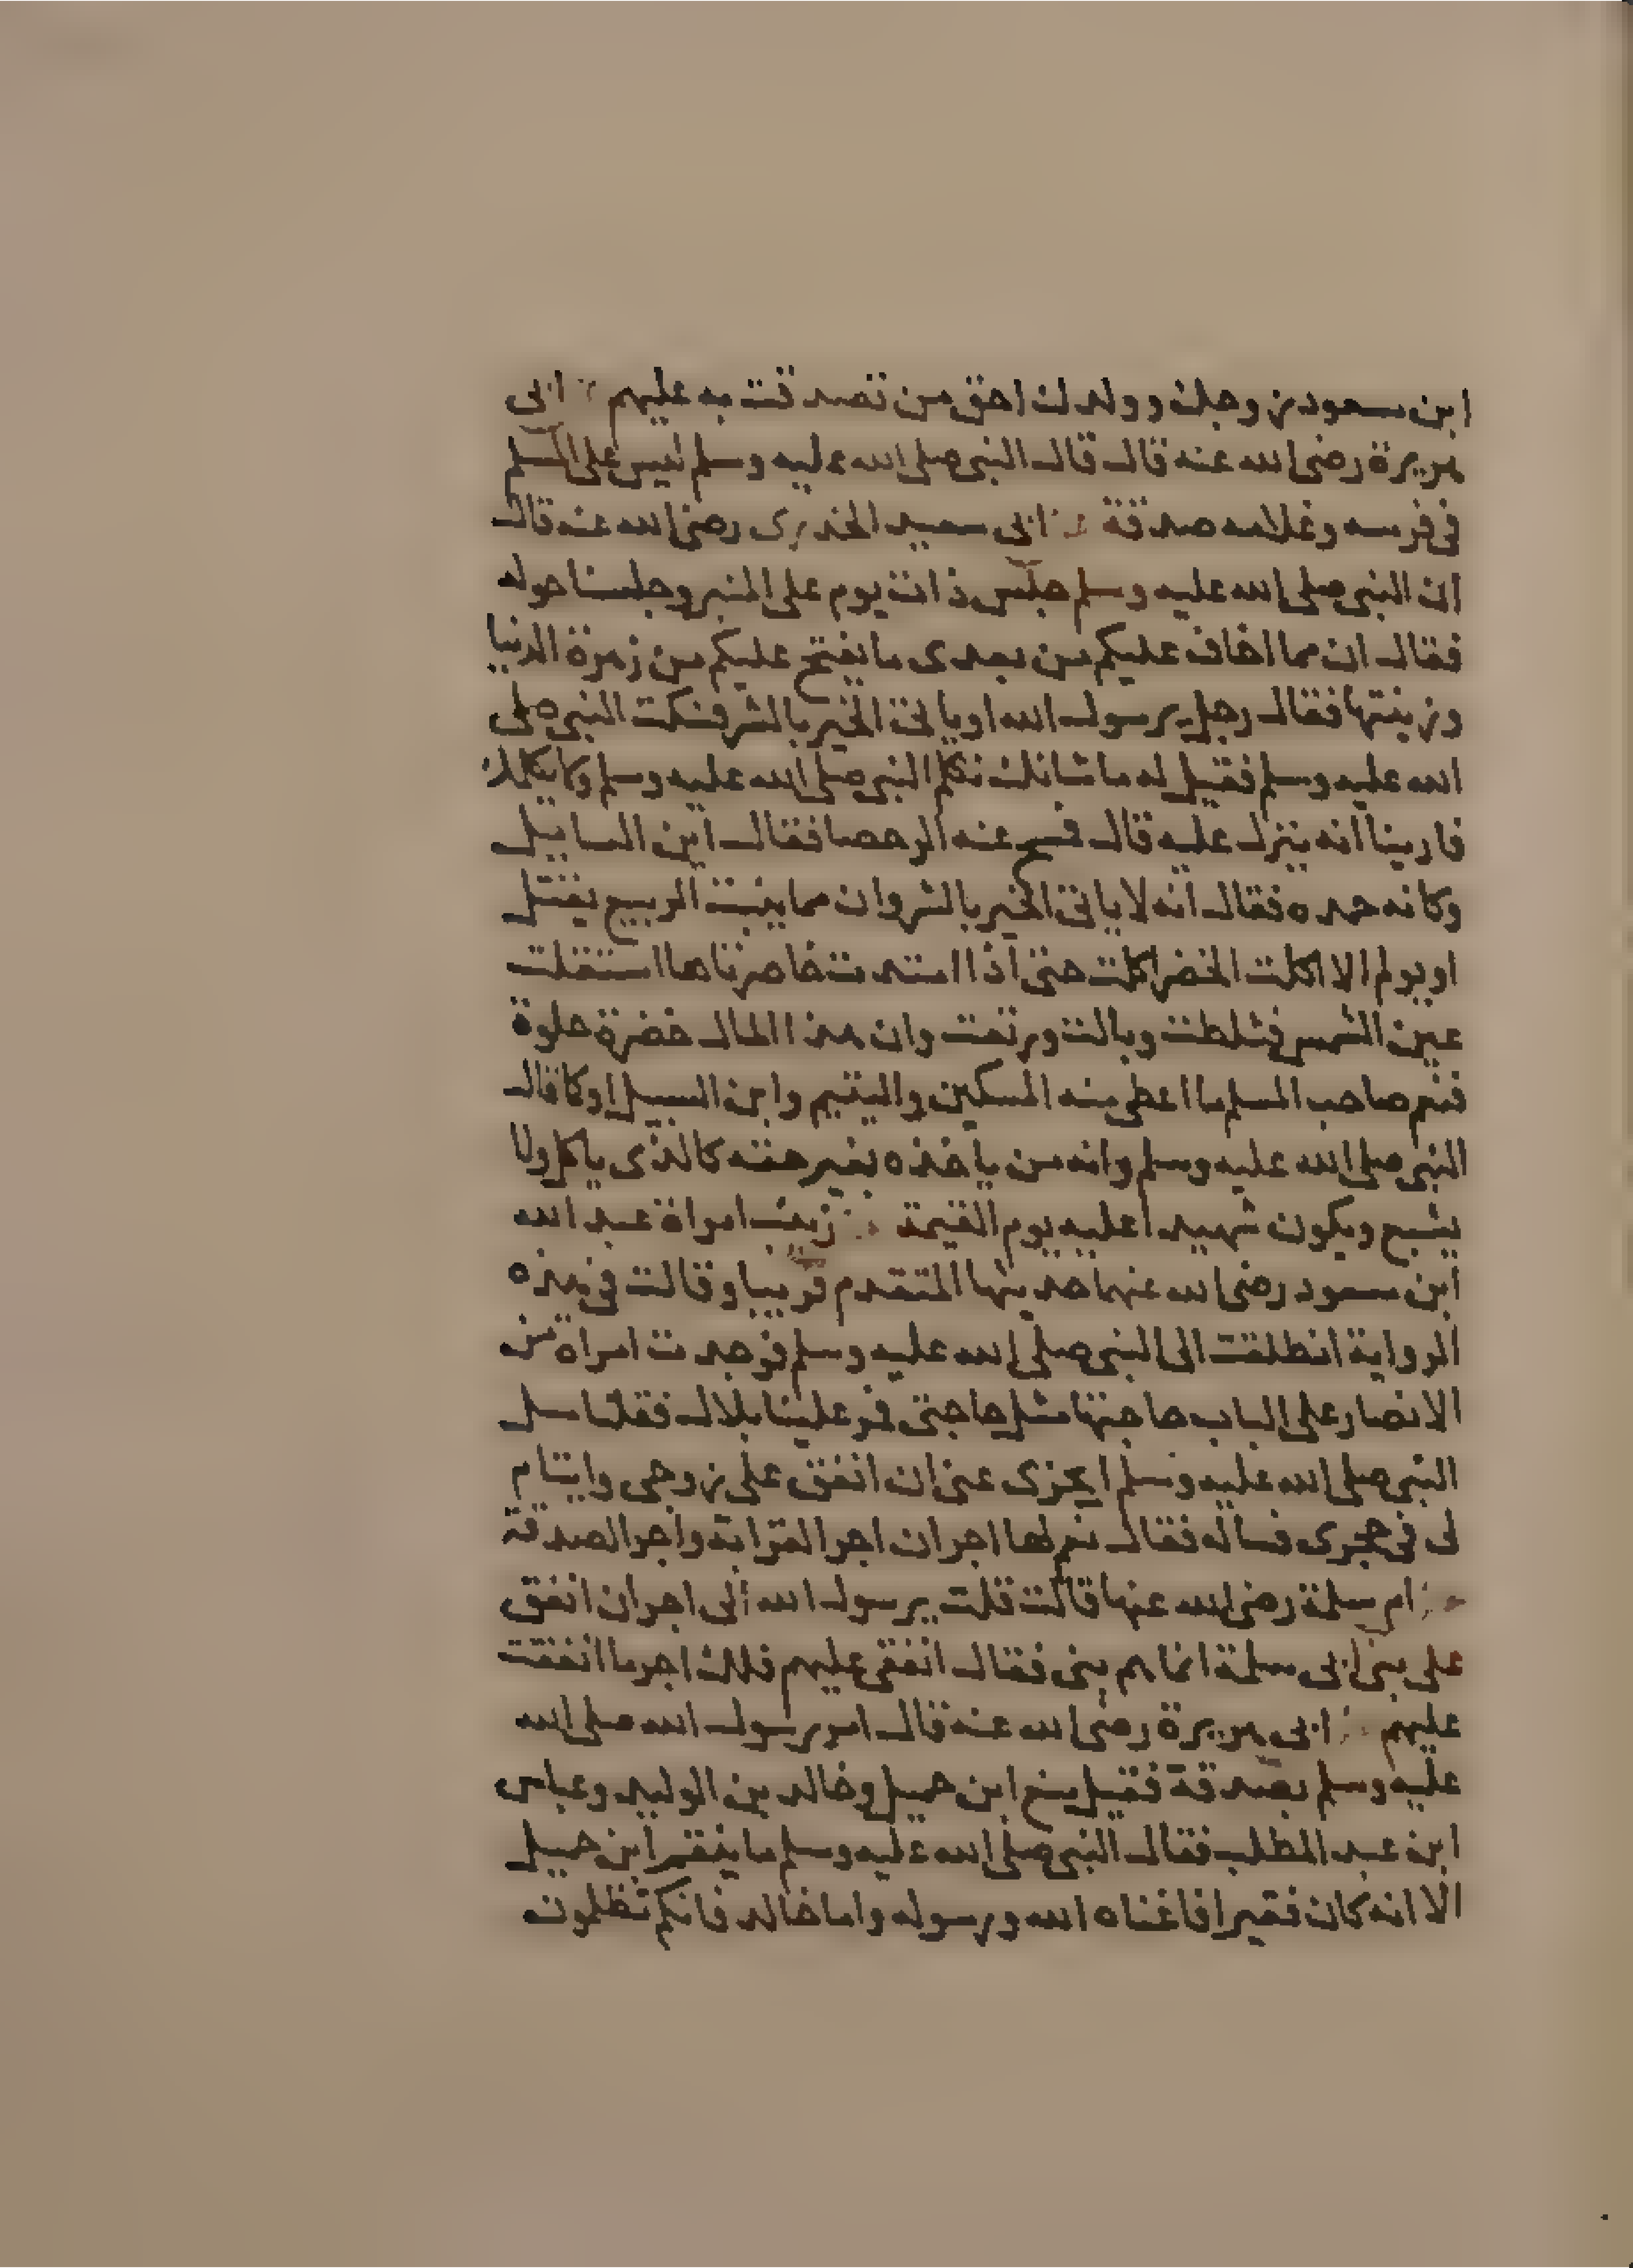 ابن مسعود زوجك وولدك احق من تصدقت به عليهم عن ابى
هريرة رضى الله عنه قال قال النبى صلى الله عليه وسلم ليس على المسلم
فى فرسه وغلامه صدقة عن ابى سعيد الخدرى رضى الله عنه قال
ان النبى صلى الله عليه وسلم جلس ذات يوم على المنبر وجلسنا حوله
فقال ان مما اخاف عليكم من بعدى ما يفتح عليكم من زهرة الدنيا
وزينتها فقال رجل يرسول الله اوياتى الخير بالشر فسكت النبى صلى
الله عليه وسلم فقيل له ما شانك تكلم النبى صلى الله عليه وسلم ولا يكلمك
فارينا انه ينزل عليه قال فمسح عنه الرحضا فقال اين السايل
وكانه حمده فقال انه لا ياتى الخير بالشر وان مما ينبت الربيع يقتل
او يولم الا اكلت الخضر اكلت حتى اذا امتدت خاصرتاها استقبلت
عين الشمس فثلطت وبالت ورتعت وان هذا المال خضرة حلوة
فنعم صاحب المسلم ما اعطى منه المسكين واليتيم وابن السبيل او كما قال
النبى صلى الله عليه وسلم وانه من ياخذه بغير حقه كالذى ياكل ولا
يشبع ويكون شهيدا عليه يوم القيمة عن زينب امراة عبد الله
ابن مسعود رضى الله عنهما حديثها المتقدم قريبا وقالت فى هذه
الرواية انطلقت الى النبى صلى الله عليه وسلم فوجدت امراة من
الانصار على الباب حاجتها مثل حاجتى فمر علينا بلال فقلنا سل
النبى صلى الله عليه وسلم ايجزى عنى ان انفق على زوجى وايتام
لى فى حجرى فساله فقال نعم لها اجران اجر القرابة واجر الصدقة
عن ام سلمة رضى الله عنها قالت قلت يرسول الله ألى اجر ان انفق
على بنى ابى سلمة انما هم بنى فقال انفقى عليهم فلك اجر ما انفقت
عليهم عن ابى هريرة رضى الله عنه قال امر رسول الله صلى الله
عليه وسلم بصدقة فقيل منع ابن جميل وخالد بن الوليد وعباس
ابن عبد المطلب فقال النبى صلى الله عليه وسلم ما ينقم ابن جميل
الا انه كان فقيرا فاغناه الله ورسوله واما خالد فانكم تظلمون